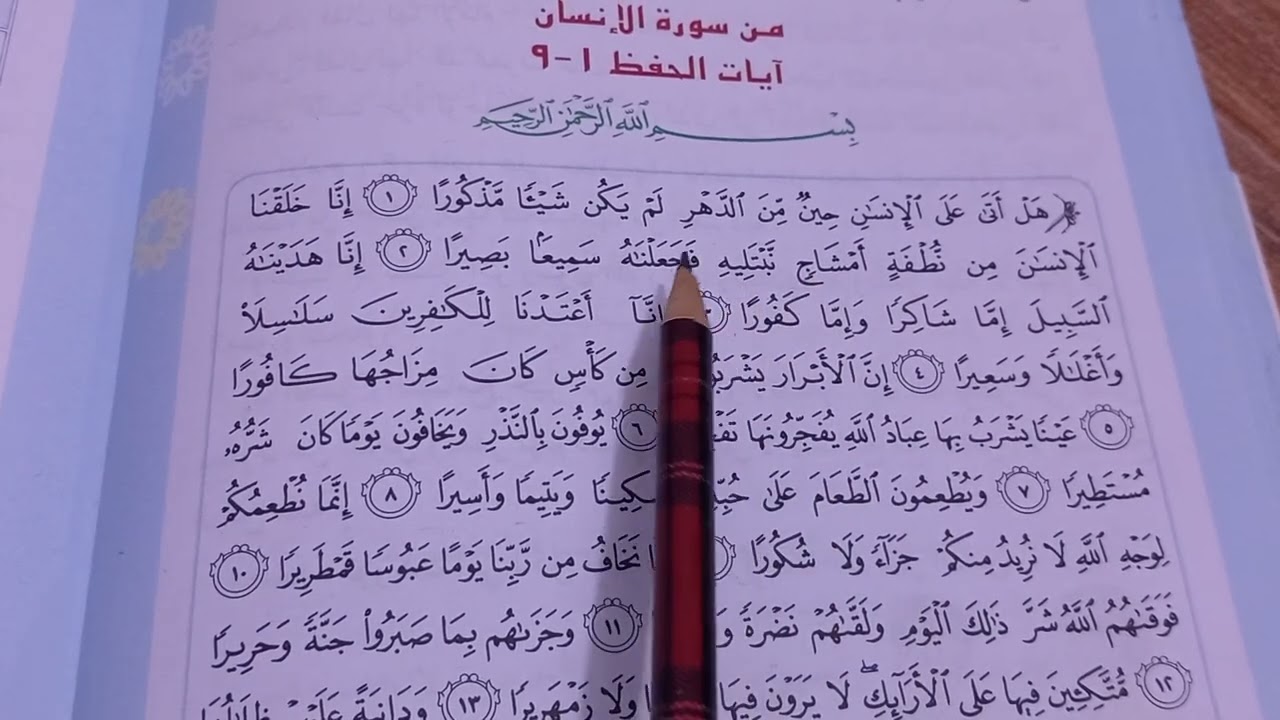 من سورة الإنسان
آيات الحفظ ١-٩
بِسْمِ اللَّهِ الرَّحْمَٰنِ الرَّحِيمِ
هَلْ أَتَىٰ عَلَى ٱلْإِنسَٰنِ حِينٌ مِّنَ ٱلدَّهْرِ لَمْ يَكُن شَيْـًٔا مَّذْكُورًا ١ إِنَّا خَلَقْنَا
ٱلْإِنسَٰنَ مِن نُّطْفَةٍ أَمْشَاجٍ نَّبْتَلِيهِ فَجَعَلْنَٰهُ سَمِيعًۢا بَصِيرًا ٢ إِنَّا هَدَيْنَٰهُ
ٱلسَّبِيلَ إِمَّا شَاكِرًا وَإِمَّا كَفُورًا إِنَّآ أَعْتَدْنَا لِلْكَٰفِرِينَ سَلَٰسِلَا۟
وَأَغْلَٰلًا وَسَعِيرًا ٤ إِنَّ ٱلْأَبْرَارَ مِن كَأْسٍ كَانَ مِزَاجُهَا كَافُورًا
٥ عَيْنًا يَشْرَبُ بِهَا عِبَادُ ٱللَّهِ يُفَجِّرُونَهَا ٦ يُوفُونَ بِٱلنَّذْرِ وَيَخَافُونَ يَوْمًا كَانَ شَرُّهُۥ
مُسْتَطِيرًا ٧ وَيُطْعِمُونَ ٱلطَّعَامَ عَلَىٰ وَيَتِيمًا وَأَسِيرًا ٨ إِنَّمَا نُطْعِمُكُمْ
لِوَجْهِ ٱللَّهِ لَا نُرِيدُ مِنكُمْ جَزَآءً وَلَا شُكُورًا نَخَافُ مِن رَّبِّنَا يَوْمًا عَبُوسًا قَمْطَرِيرًا ١٠
فَوَقَىٰهُمُ ٱللَّهُ شَرَّ ذَٰلِكَ ٱلْيَوْمِ وَلَقَّىٰهُمْ نَضْرَةً ١١ وَجَزَىٰهُم بِمَا صَبَرُوا۟ جَنَّةً وَحَرِيرًا
١٢ مُّتَّكِـِٔينَ فِيهَا عَلَى ٱلْأَرَآئِكِ ۖ لَا يَرَوْنَ فِيهَا وَلَا زَمْهَرِيرًا ١٣ وَدَانِيَةً عَلَيْهِمْ ظِلَٰلُهَا